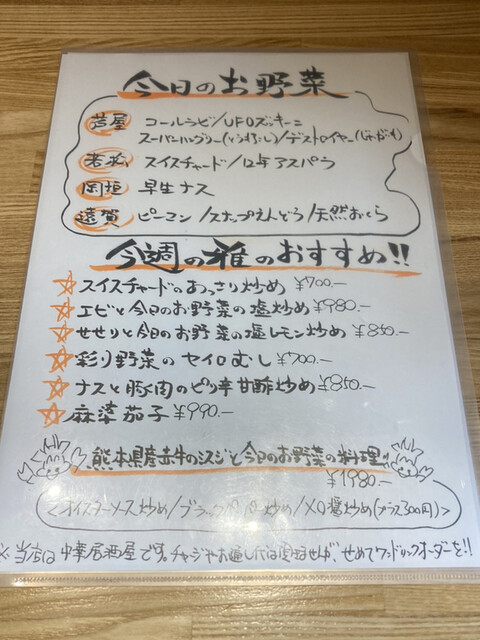 今日のお野菜
芦屋 コールラビ/UFOズッキーニ
スーパーハングリー(とうもろこし)/デストロイヤー(じゃがいも)
若松 スイスチャード/12号アスパラ
岡垣 早生ナス
遠賀 ピーマン/スナップえんどう/天然おくら
今週の雅のおすすめ!!
☆スイスチャードのあっさり炒め ¥700.-
☆エビと今日のお野菜の塩炒め ¥980.-
☆せせりと今日のお野菜の塩レモン炒め ¥850.-
☆彩り野菜のセイロむし ¥700.-
☆ナスと豚肉のピリ辛甘酢炒め ¥850.-
☆麻婆茄子 ¥990.-
熊本県産赤牛のミスジと今日のお野菜の料理
¥1980.-
<オイスターソース炒め/ブラックペッパー炒め/XO醤炒め(プラス300円)>
※当店は中華居酒屋です。チャージやお通し代は頂きませんが、せめてワンドリンクオーダーを!!